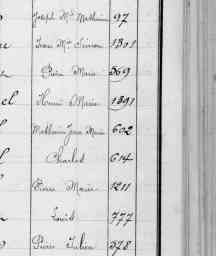 Joseph Me Mathurin 97
Jean Me Simon 1301
Pierre Marie 369
el Henri Marie 1391
Mathurin Jean Marie 602
Charles 614
Pierre Marie 1211
Louis 777
Pierre Julien 378